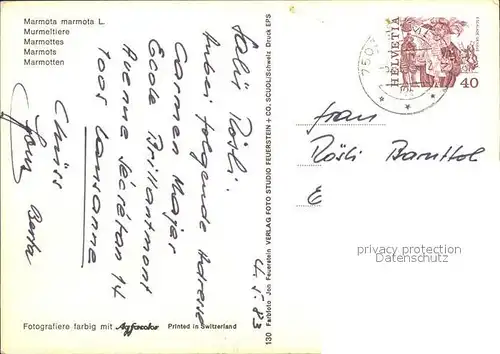 Marmota marmota L.
Murmeltiere
Marmottes
Marmots
Marmotten
4.5.83
Salü Rösli.
Anbei folgende Adresse
Carmen Majer
Ecole Brillantmont
Avenue Secrétan 14
1005 Lausanne
Berta
Fotografiere farbig mit Agfacolor Printed in Switzerland
130 Farbfoto Jon Feuerstein VERLAG FOTO STUDIO FEUERSTEIN + CO. SCUOL/Schweiz Druck EPS
HELVETIA
40
Frau
Rösli
E
privacy protection
watermark